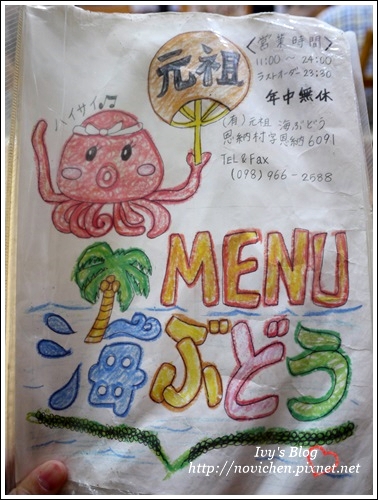 元祖
<営業時間>
11:00〜24:00
ラストオーダー23:30
年中無休
(有)元祖 海ぶどう
恩納村字恩納6091
TEL&FAX
(098)966-2588
ハイサイ♪♫
MENU
海ぶどう
Ivy's Blog
http://novichen.pixnet.net